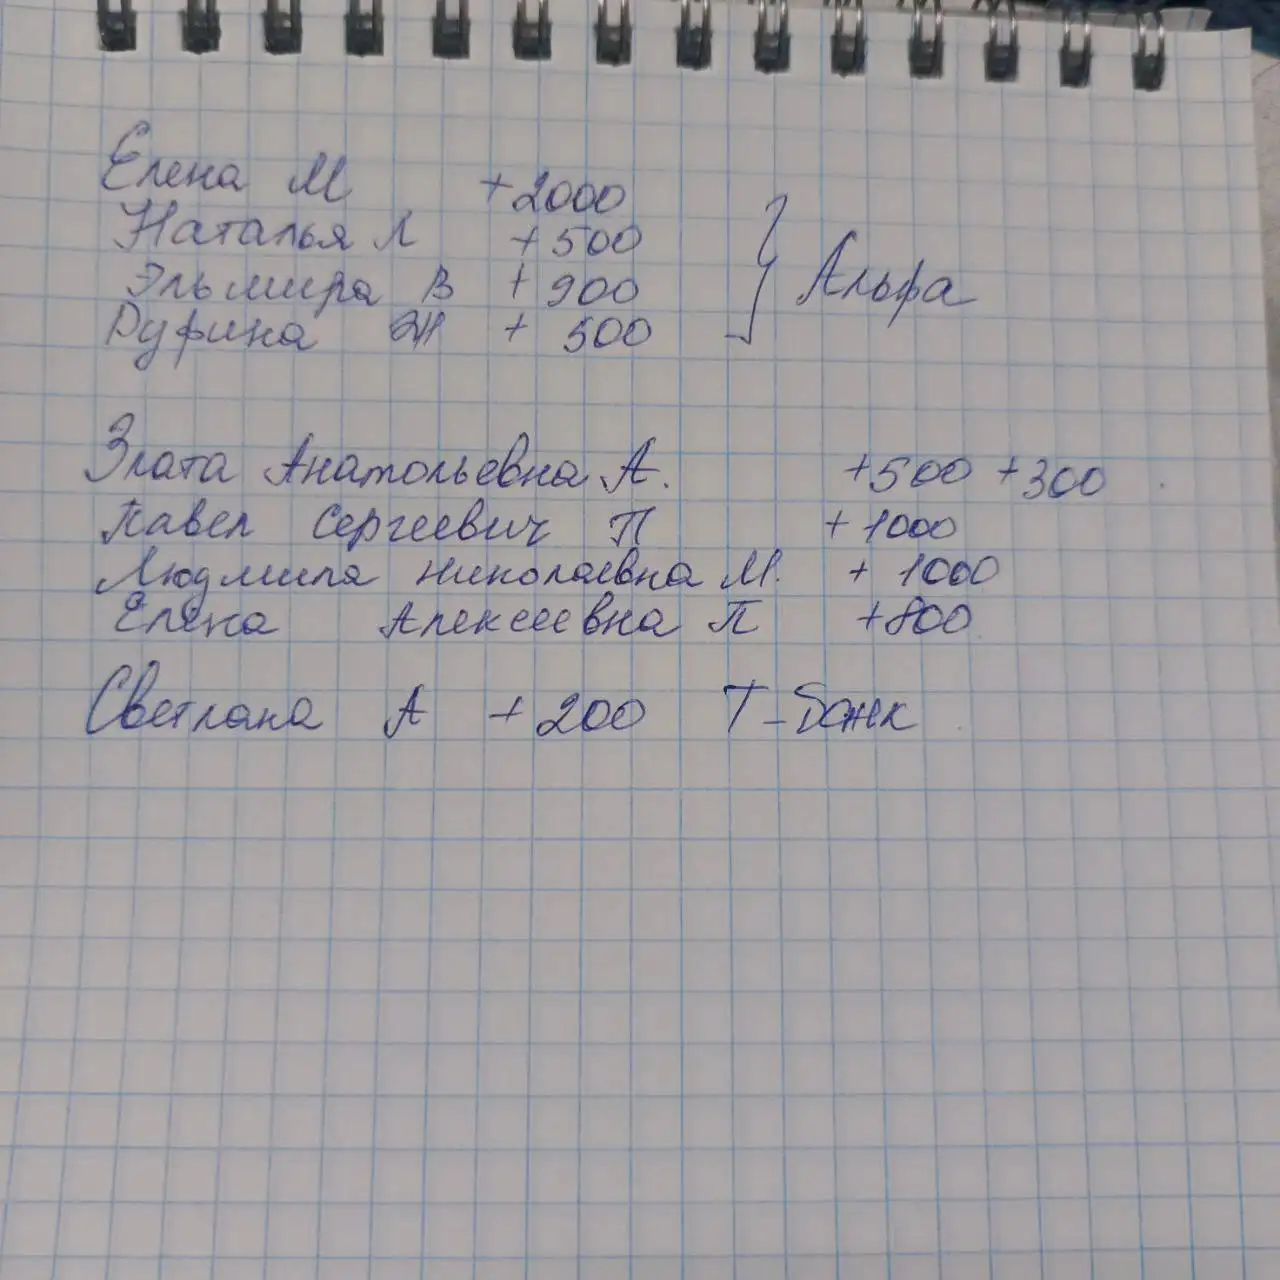 Елена М +2000
Наталья Л +500
Эльмира В +900
Руфина +500
Альфа
Злата Анатольевна А. +500 +300
Павел Сергеевич П +1000
Людмила Николаевна М. +1000
Елена Алексеевна П +800
Светлана А +200 Т-Банк